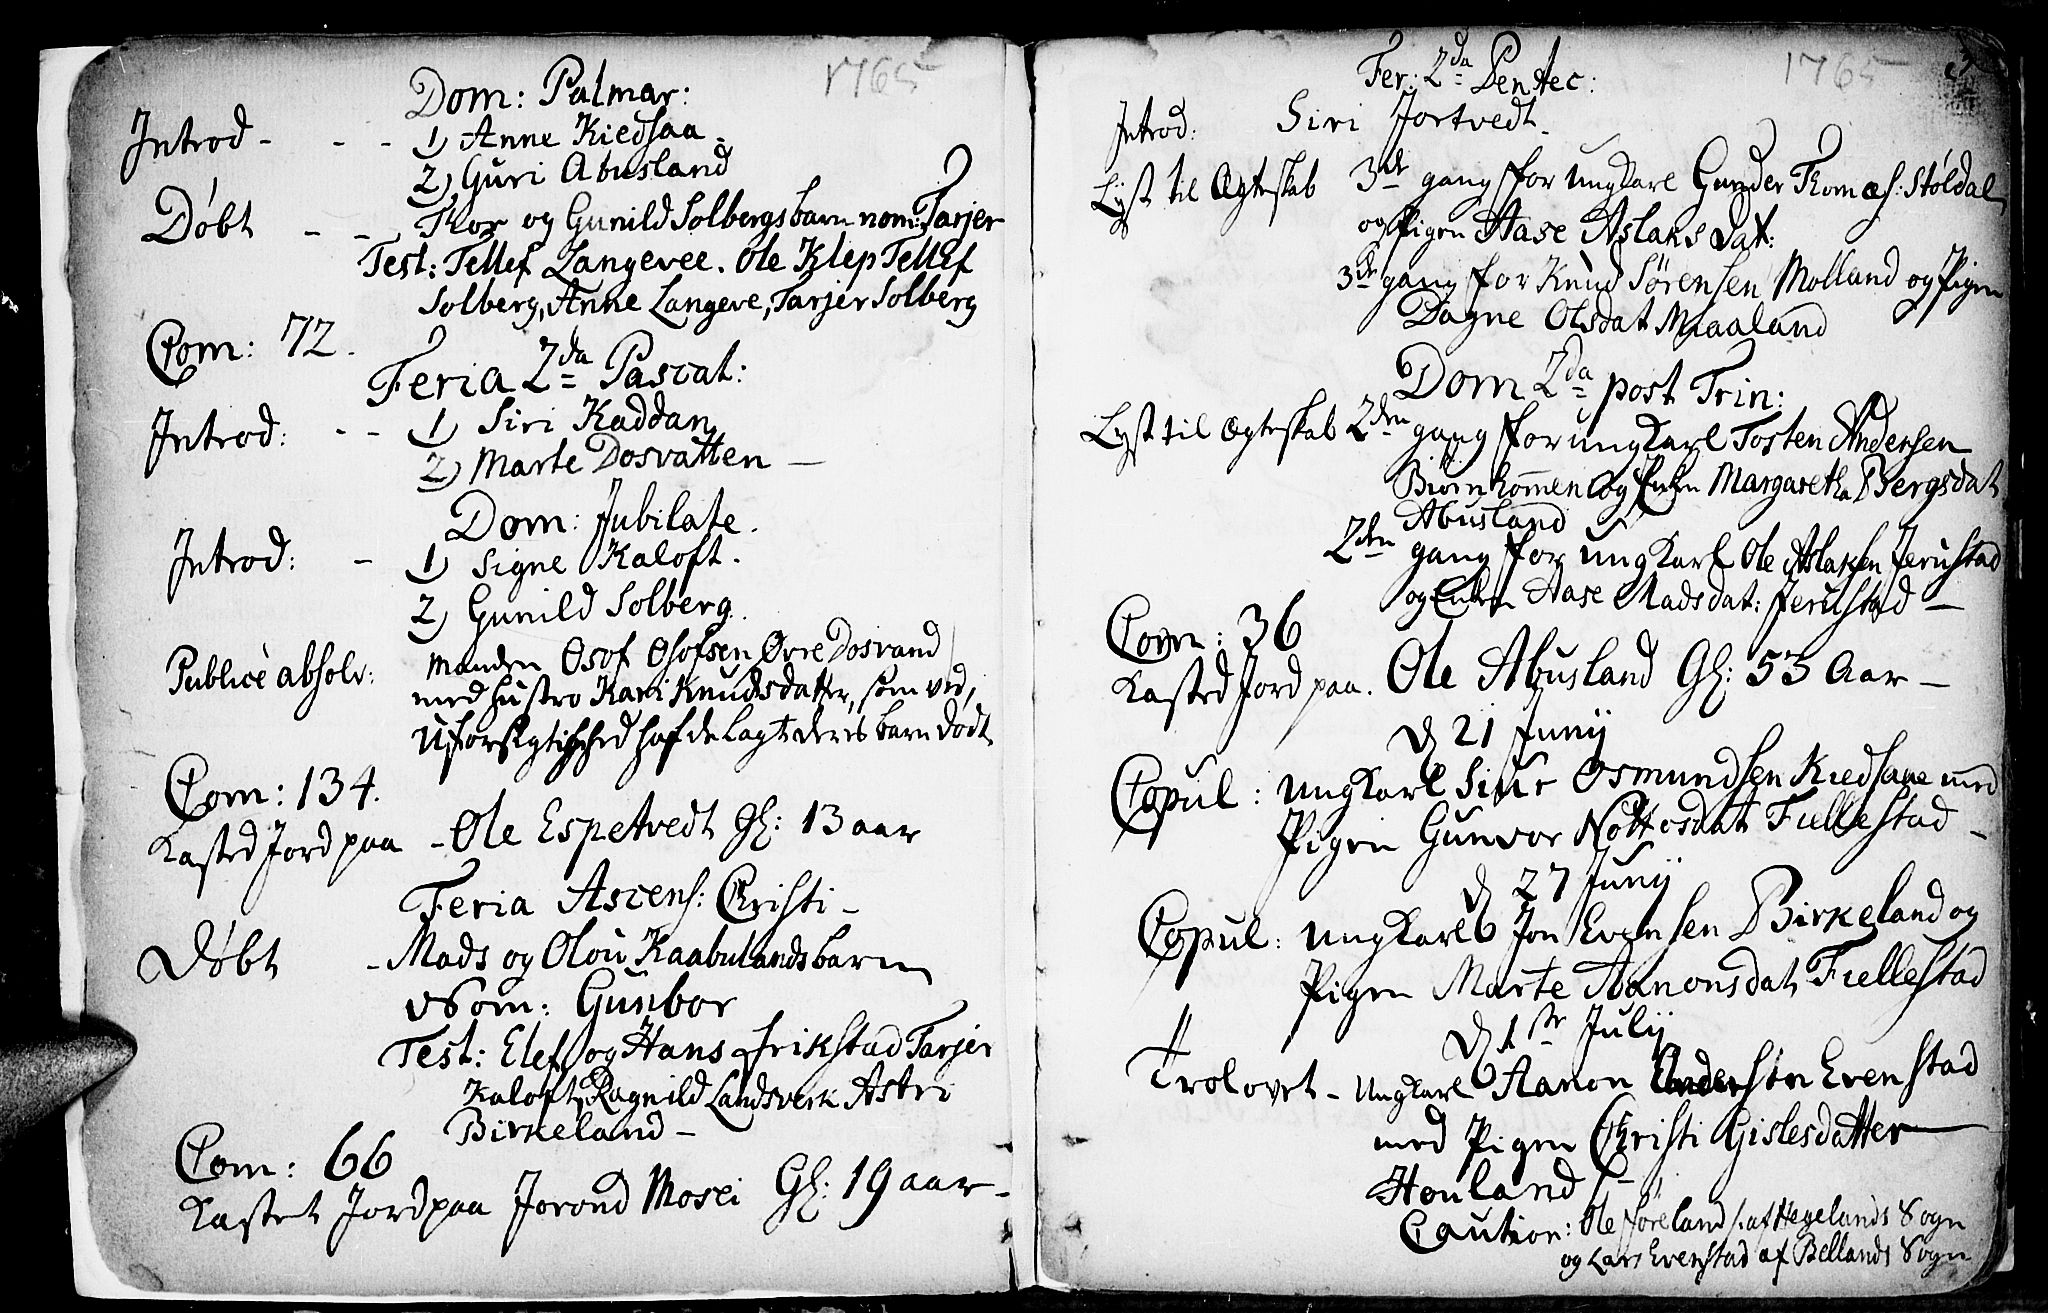 1765
Dom: Palmar:
Introd - - - 1) Anne Kiedsaa
2) Guri Abusland
Døbt - - Thor og Gunild Solbergs barn nom: Tarjer
Test: Tellef Langevee. Ole Klep Tellef
Solberg, Anne Langeve, Tarjer Solberg
Com: 72.
Feria 2da Pascat:
Introd: - - 1) Siri Kaddan
2) Marte Dosvatten —
Dom: Jubilate.
Introd: - 1) Signe Kaloft.
2) Gunild Solberg.
Publicè absolv: manden Osof Osofsen Øvre Dosvand
med hustro Kari Knudsdatter, som ved
Uforsigtighed hafde lagt deris barn dødt
Com: 134.
Kasted Jord paa - Ole Espetvedt Gl: 13 aar
Feria Ascens: Christi -
Døbt - Mads og Olou Kaabulands barn
Nom: Gunbor
Test: Elef og Hans Erikstad Tarjer
Kaloft, Ragnild Landsverk Astri
Birkeland -
Com: 66
Kastet Jord paa Jorond Mosei Gl: 19 aar -
1765 3
Fer: 2da Pentec:
Introd: Siri Jortvedt
Lyst til Ægteskab 3de gang for ungKarl Gunder Thomæs: Støldal
og Pigen Aase Aslaks dat:
3de gang for Knud Sørensen Molland og Pigen
Dagne Olsdat Maaland
Dom 2da post Trin:
Lyst til Ægteskab 2den gang for ungKarl Tosten Andersen
Biørnkommen og Enken Margaretha Bergsdat
Abusland
2den gang for ungKarl Ole Aslaksen Jerustad
og Enken Aase Madsdat: Jerustad —
Com: 36
Kasted Jord paa. Ole Abusland Gl: 53 Aar —
D 21 Junij
Copul: ungKarl Siur Osmundsen Kiedsaae med
Pigen Gunvor Nottosdat Fiellestad -
D 27 Junij
Copul: ungKarl Jon Evensen Birkeland og
Pigen Marte Aanonsdat Fiellestad
D 1ste Julij
Trolovet - ungKarl Aanon Andersøn Evenstad
med Pigen Christi Gislesdatter
Honland -
Caution: Ole Føreland af Hegelands Sogn
og Lars Evenstad af Bellands Sogn